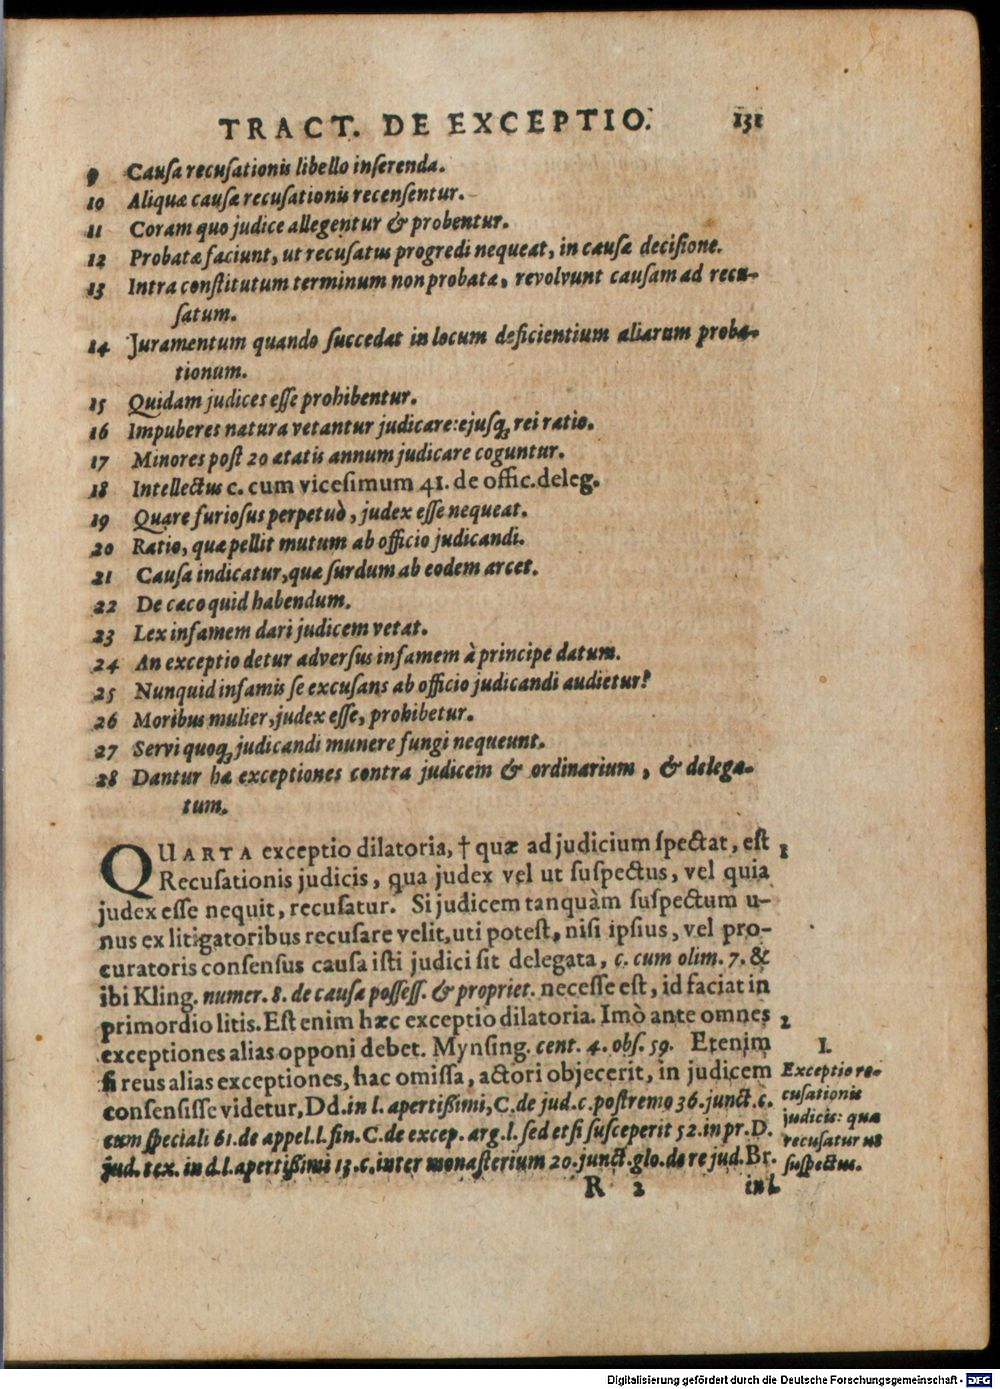 TRACT. DE EXCEPTIO. 131
9 Cauſa recuſationis libello inſerenda.
10 Aliquæ cauſæ recuſationis recenſentur.
11 Coram quo judice allegentur & probentur.
12 Probatæ faciunt, ut recuſatus progredi nequeat, in cauſæ deciſione.
13 Intra conſtitutum terminum non probatæ, revolvunt cauſam ad recu-
ſatum.
14 Juramentum quando ſuccedat in locum deficientium aliarum proba-
tionum.
15 Quidam judices eſſe prohibentur.
16 Impuberes natura vetantur judicare: ejuſq́; rei ratio.
17 Minores poſt 20 ætatis annum judicare coguntur.
18 Intellectus c. cum viceſimum 41. de offic. deleg.
19 Quare furioſus perpetuò, judex eſſe nequeat.
20 Ratio, quæ pellit mutum ab officio judicandi.
21 Cauſa indicatur, quæ ſurdum ab eodem arcet.
22 De cæco quid habendum.
23 Lex infamem dari judicem vetat.
24 An exceptio detur adverſus infamem à principe datum.
25 Nunquid infamis ſe excuſans ab officio judicandi audietur?
26 Moribus mulier, judex eſſe, prohibetur.
27 Servi quoq́; judicandi munere fungi nequeunt.
28 Dantur hæ exceptiones contra judicem & ordinarium, & delega-
tum.
QUARTA exceptio dilatoria, † quæ ad judicium ſpectat, eſt 1
Recuſationis judicis, qua judex vel ut ſuſpectus, vel quia
judex eſſe nequit, recuſatur. Si judicem tanquàm ſuſpectum u-
nus ex litigatoribus recuſare velit, uti poteſt, niſi ipſius, vel pro-
curatoris conſenſus cauſa iſti judici ſit delegata, c. cum olim. 7. &
ibi Kling. numer. 8. de cauſa poſſeſſ. & propriet. neceſſe eſt, id faciat in
primordio litis. Eſt enim hæc exceptio dilatoria. Imò ante omnes 2
exceptiones alias opponi debet. Mynſing. cent. 4. obſ. 59. Etenim
ſi reus alias exceptiones, hac omiſſa, actori objecerit, in judicem
conſenſiſſe videtur, Dd. in l. apertiſſimi, C. de jud. c. poſtremo 36. junct. c.
cum ſpeciali 61. de appel. l. fin. C. de excep. arg. l. ſed etſi ſuſceperit 52. in pr. D.
jud. tex. in d. l. apertiſſimi 13. c. inter monaſterium 20. junct. glo. de re jud. Br.
I.
Exceptio re-
cuſationis
judicis: qua
recuſatur ut
ſuſpectus.
R 2 in l.
Digitalisierung gefördert durch die Deutsche Forschungsgemeinschaft - DFG